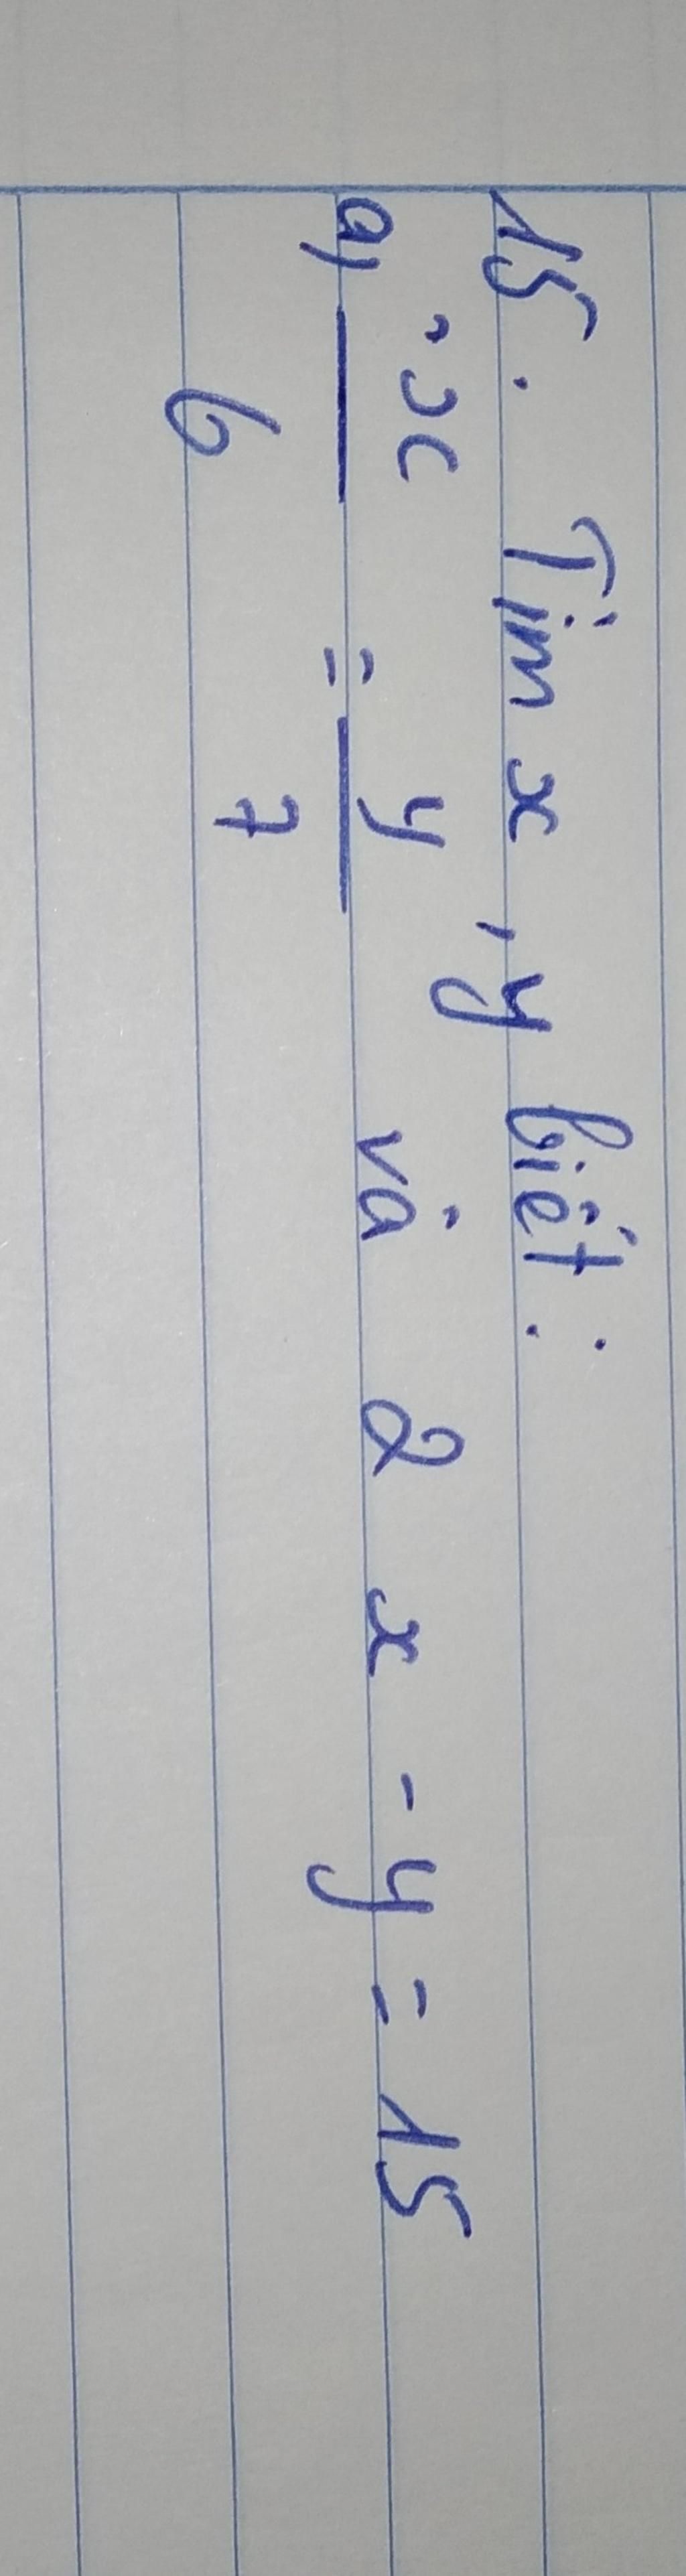 15. Tìm x, y biết:
a, x/6 = y/7 và 2x - y = 15